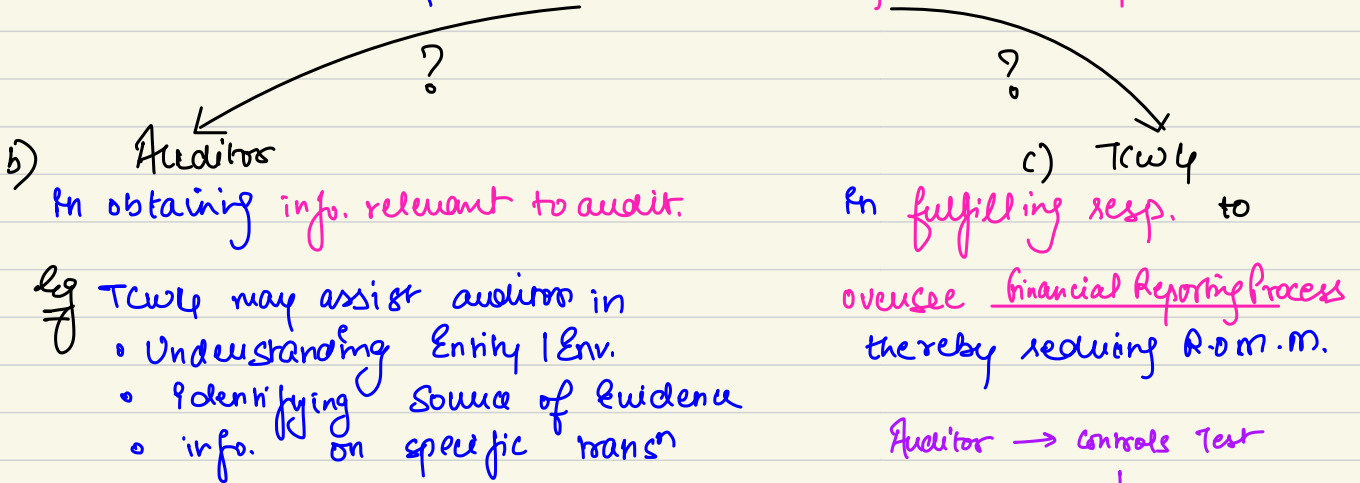 ?
?
b) Auditor
c) TCWG
In obtaining info. relevant to audit.
Eg TCWG may assist auditor in
• Understanding Entity / Env.
• Identifying Source of Evidence
• info. on specific transⁿ
In fulfilling resp. to
oversee Financial Reporting Process
thereby reducing R.O.M.M.
Auditor → Controls Test